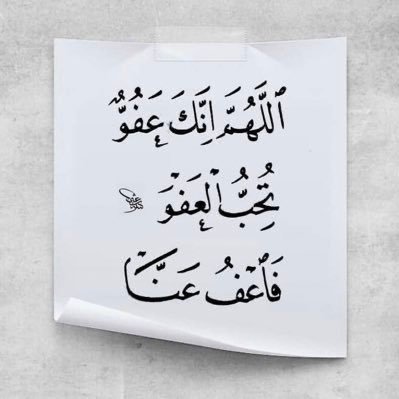 ٱللَّهُمَّ اِنَّكَ عَفُوٌّ
تُحِبُّ الْعَفْوَ
فَٱعْفُ عَنَّا